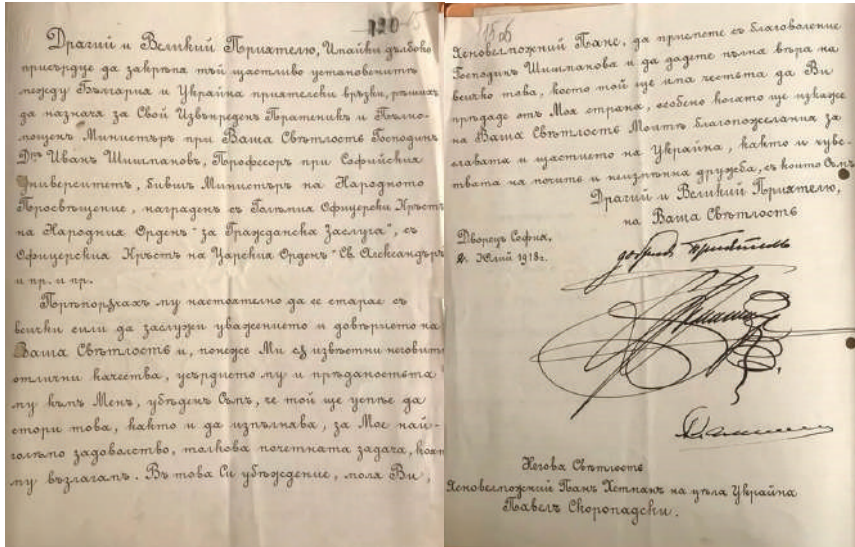 120
Драгий и Великий Приятелю, Имайки дълбоко
присърдце да закрѣпа тъй щастливо установенитѣ
между България и Украйна приятелски връзки, рѣшихъ
да назнача за Свой Извънреденъ Пратеникъ и Пълно-
мощенъ Министъръ при Ваша Свѣтлость Господинъ
Д-ръ Иванъ Шишмановъ, Професоръ при Софийския
Университетъ, бившъ Министъръ на Народното
Просвѣщение, награденъ съ Голѣмия Офицерски Кръстъ
на Народния Орденъ "за Гражданска Заслуга", съ
Офицерския Кръстъ на Царския Орденъ "Св. Александъръ
и пр. и пр.
Прѣпорѫчахъ му настоятелно да се старае съ
всички сили да заслужи уважението и довѣрието на
Ваша Свѣтлость и, понеже Ми сѫ извѣстни неговитѣ
отлични качества, усърдието му и прѣданостьта
му къмъ Менъ, убѣденъ Съмъ, че той ще успѣе да
стори това, както и да изпълнава, за Мое най-
голѣмо задоволство, толкова почетната задача, която
му възлагамъ. Въ това Си убѣждение, моля Ви,
Ясновелможний Пане, да приемете съ благоволение
Господинъ Шишманова и да дадете пълна вѣра на
всичко това, което той ще има честьта да Ви
прѣдаде отъ Моя страна, особено когато ще изкаже
на Ваша Свѣтлость Моитѣ благопожелания за
славата и щастието на Украйна, както и чувс-
твата на почитъ и неизмѣнна дружба, съ които Съмъ
Драгий и Великий Приятелю,
на Ваша Свѣтлость
Дворецъ София,
Юлий 1918 г.
добъръ приятель
Негова Свѣтлость
Ясновелможний Панъ Хетманъ на цѣла Украйна
Павелъ Скоропадски.